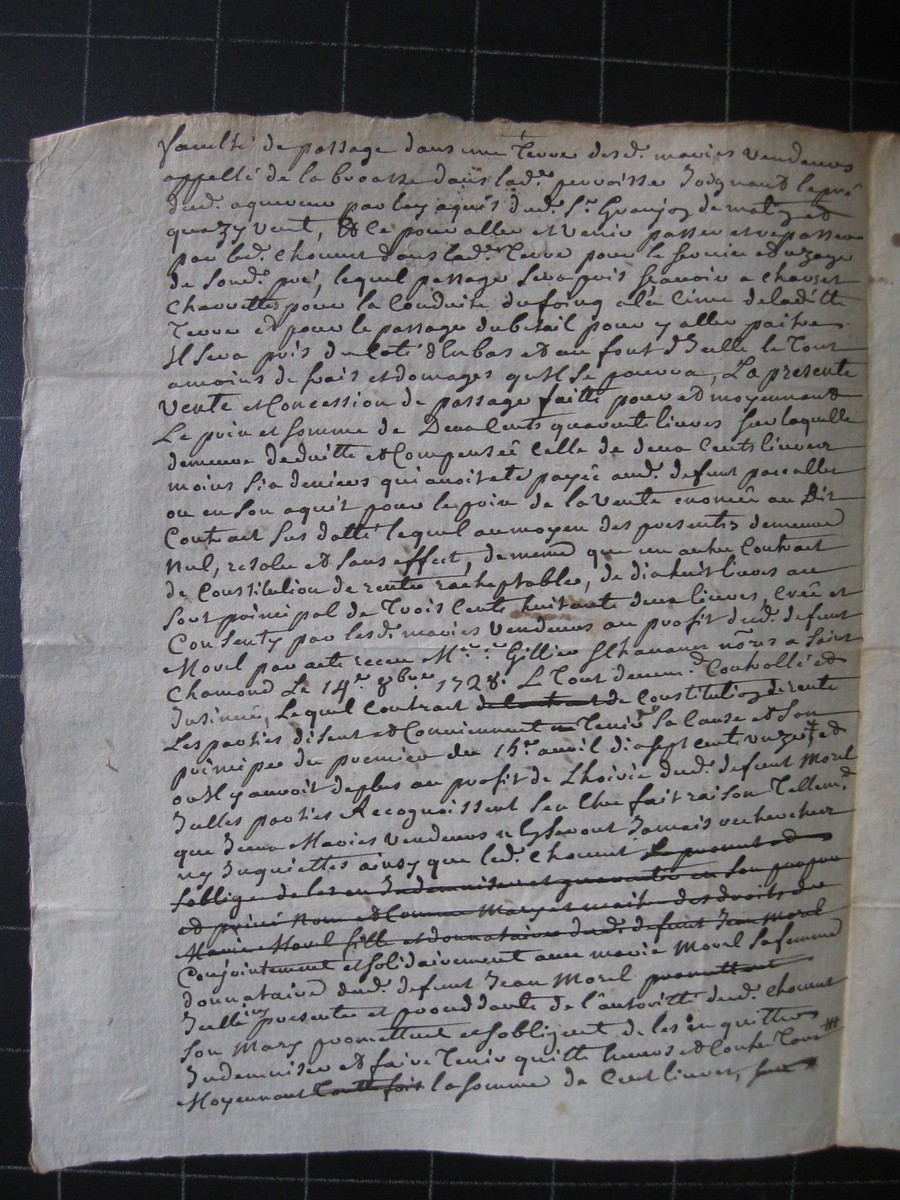 faculté de passage dans une Terre desd. mariés vendeurs
appellé de la broasse dans lad.e parroisse Joignant le pré
dud. acquereur par luy aquis dud. Sr. Granjon de matin et
vent, Et ce pour aller et venir passer et repasser
par led. Chomut dans lad.e Terre pour le service et uzage
de sond. pré, lequel passage sera pris sçavoir a chars et
charrettes pour la Conduite du foing a la Cime de laditte
Terre et pour le passage du betail pour y aller paitre
Il sera pris du Coté d'Enbas et au font d'Icelle le Tout
a moins de frais et domages qu'Il se pourra, La presente
vente et Concession de passage faitte pour et moyennant
Le prix et somme de Deux Cents quarante livres sur laquelle
demeure deduitte et Compensée Celle de deux Cents livres
moins six deniers qui avoit eté payée aud. defunt
ou en son aquit pour le prix de la vente enoncée au Dit
Contract sus datté lequel au moyen des presentes demeure
Nul, resolu et sans effect, de meme que un autre Contract
de Constitution de rente rachептable, de dixhuit livres au
sort principal de Trois Cents huitante deux livres, Creé et
Consenty par lesd. mariés vendeurs au profit dud. defunt
Morel par acte receu Me. Gillier no.res a Saint
Chamond Le 14e. 8bre 1728. Le Tout deuem.t Controllé et
Insinué, Lequel Contract de Constitution de rente
Les parties disent et Conviennent Tenir sa Cause et son
principe du premier du 15e. avril dix sept cent et
ou Il y avoit de plus au profit de L'hoirie dud. defunt Morel
Icelles parties Recognoissent s'en Etre fait raison Tellem.t
que Iceux Mariés vendeurs n'En seront Jamais recherchés
ny Inquiettés ainsy que led. Chomut Le promet et
s'oblige de les en Indemniser et garentir en son propre
et privé Nom et Comme Mary et maitre des droits de
Marie Morel fille et donnataire dud. defunt Jean Morel
Conjointement et solidairement avec marie Morel sa femme
donnataire dud. defunt Jean Morel promettant
Icelle Icy presente et procedante de l'autorité dud. Chomut
son mary promettent et s'obligent de les en quitter
Indemniser et faire Tenir quitte Envers et Contre Tous
Moyennant Toutte fois la somme de Cent livres,